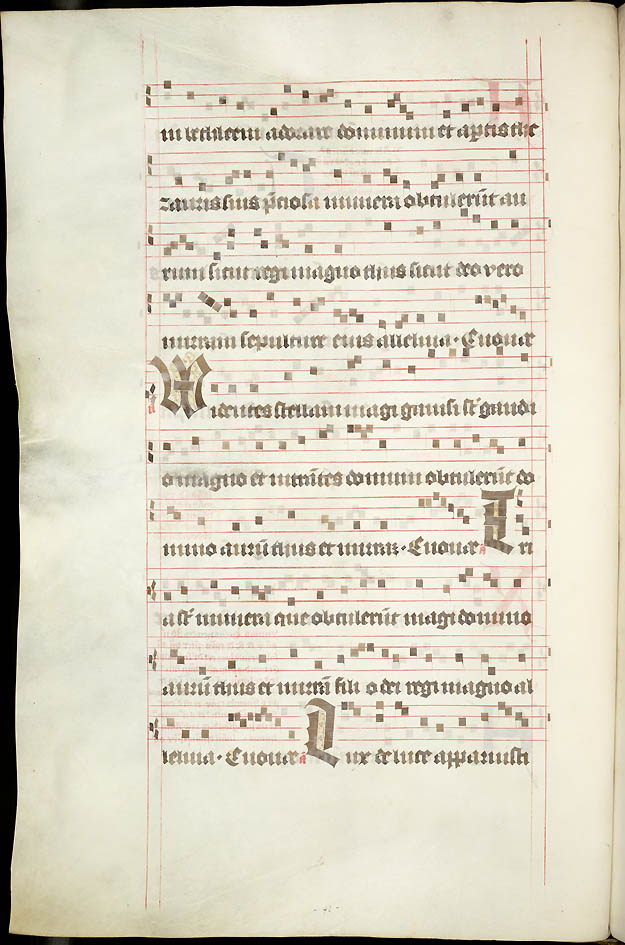 in bethleem adorare dominum et aptis the
zauris suis p̄ciosa munera obtulerūt au
rum sicut regi magno thus sicut deo vero
mirram sepulture eius alleluia · Euouae
Videntes stellam magi gauisi sūt gaudi
o magno et intrātes domum obtulerūt do
mino aurū thus et mirram · Euouae a Tri
a sūt munera que obtulerūt magi domino
aurū thus et mirrā fili o dei regi magno al
leluia · Euouae a Lux de luce apparuisti